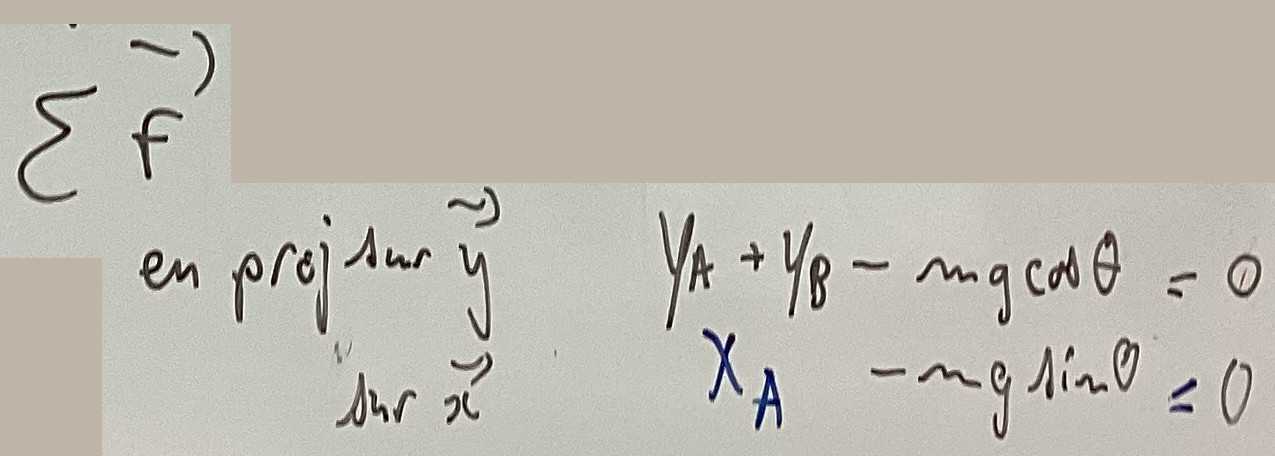 Σ F⃗
en proj sur y⃗ YA + YB - mg cos θ = 0
" sur x⃗ XA - mg sin θ = 0